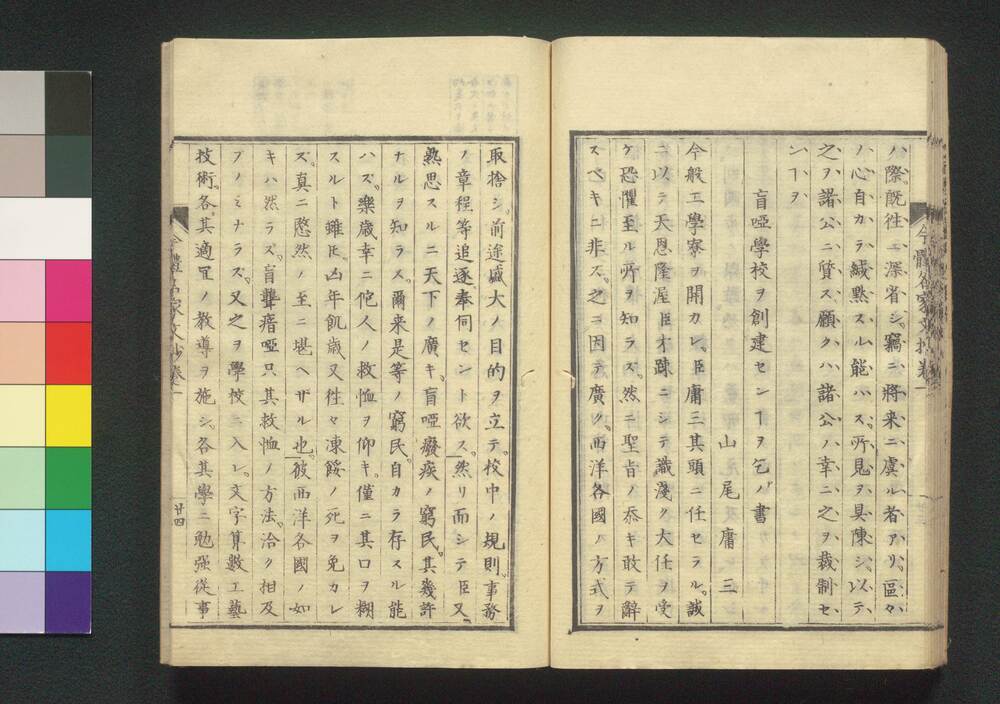 ハ際既往ニ深省シ。竊ニ將来ニ虞ル者アリ。區々
ハ心自カラ緘黙スル能ハス。所見ヲ具陳シ。以テ
之ヲ諸公ニ質ス願クハ諸公ハ幸ニ之ヲ裁制セ
ンヿヲ
盲啞學校ヲ創建センヿヲ乞ノ書
山尾庸三
今般工學寮ヲ開カレ。臣庸三其頭ニ任セラル。誠
ニ以テ天恩隆渥臣才疎ニシテ識淺ク大任ヲ受
ケ恐懼至ル所ヲ知ラス。然ニ聖旨ノ忝キ敢テ辭
スベキニ非ス。之ニ因テ廣ク。西洋各國ノ方式ヲ
取捨シ。前途盛大ノ目的ヲ立テ。校中ノ規則。事務
ノ章程等追逐奉伺セント欲ス。然リ而シテ臣又
熟思スルニ天下ノ廣キ。盲啞癈疾ノ窮民。其幾許
ナルヲ知ラス。爾来是等ノ窮民。自カラ存スル能
ハズ。樂歳幸ニ佗人ノ救恤ヲ仰キ。僅ニ其口ヲ糊
スルト雖𪜈。凶年飢歳又往々凍餒ノ死ヲ免カレ
ズ。真ニ愍然ノ至ニ堪ヘザル也。彼西洋各國ノ如
キハ然ラズ。盲聾瘖啞只其救恤ノ方法。洽ク相及
ブノミナラズ。又之ヲ學校ニ入レ。文字算數工藝
技術。各其適冝ノ教導ヲ施シ。各其學ニ勉强從事
今體名家文抄卷一
廿四